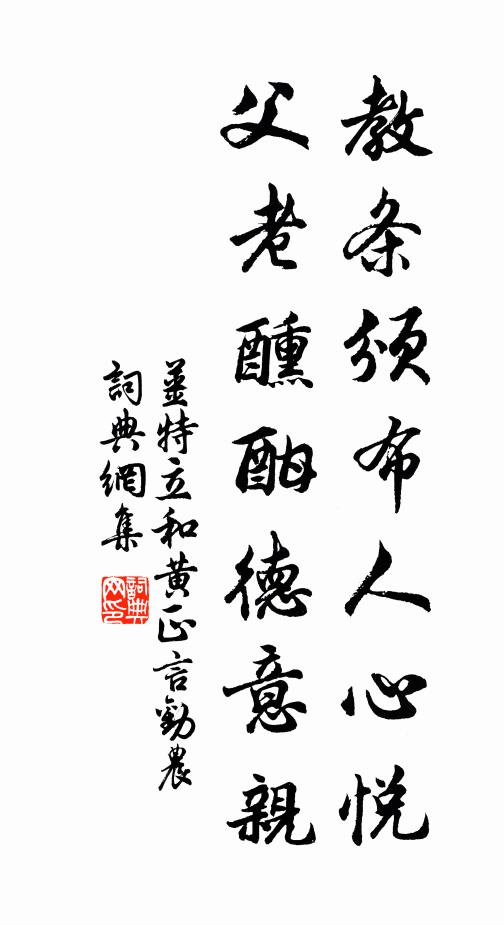 教条頒布人心悅
父老醺酣德意親
姜特立和黃正言勸農
詞典網集
詞典網印